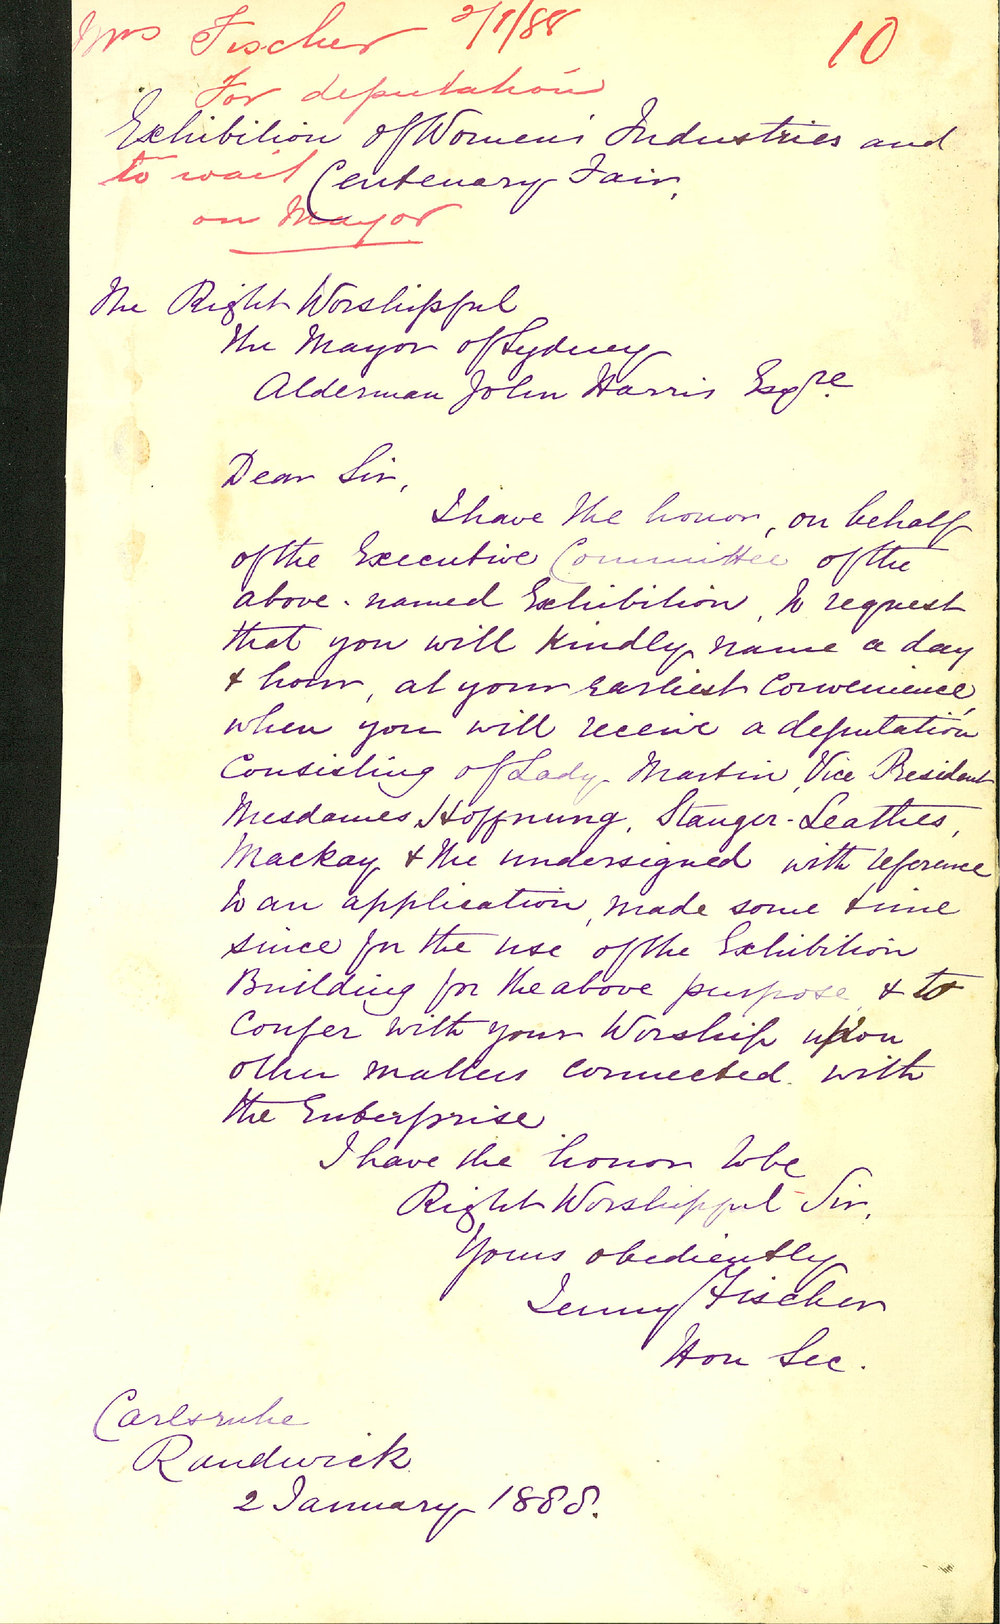 Mrs Fischer 2/1/88
10
For deputation
Exhibition of Women's Industries and
to wait Centenary Fair.
on Mayor
The Right Worshipful
The Mayor of Sydney
Alderman John Harris Esqre.
Dear Sir,
I have the honor, on behalf
of the Executive Committee of the
above-named Exhibition, to request
that you will kindly name a day
& hour, at your earliest convenience,
when you will receive a deputation
Consisting of Lady Martin, Vice President
Mesdames Hoffnung, Stanger-Leathes,
Mackay & the undersigned with reference
to an application, made some time
since for the use of the Exhibition
Building for the above purpose & to
Confer with your Worship upon
other matters connected with
the Enterprise
I have the honor to be
Right Worshipful Sir,
Yours obediently
Jenny Fischer
Hon Sec.
Carlsruhe
Randwick
2 January 1888.